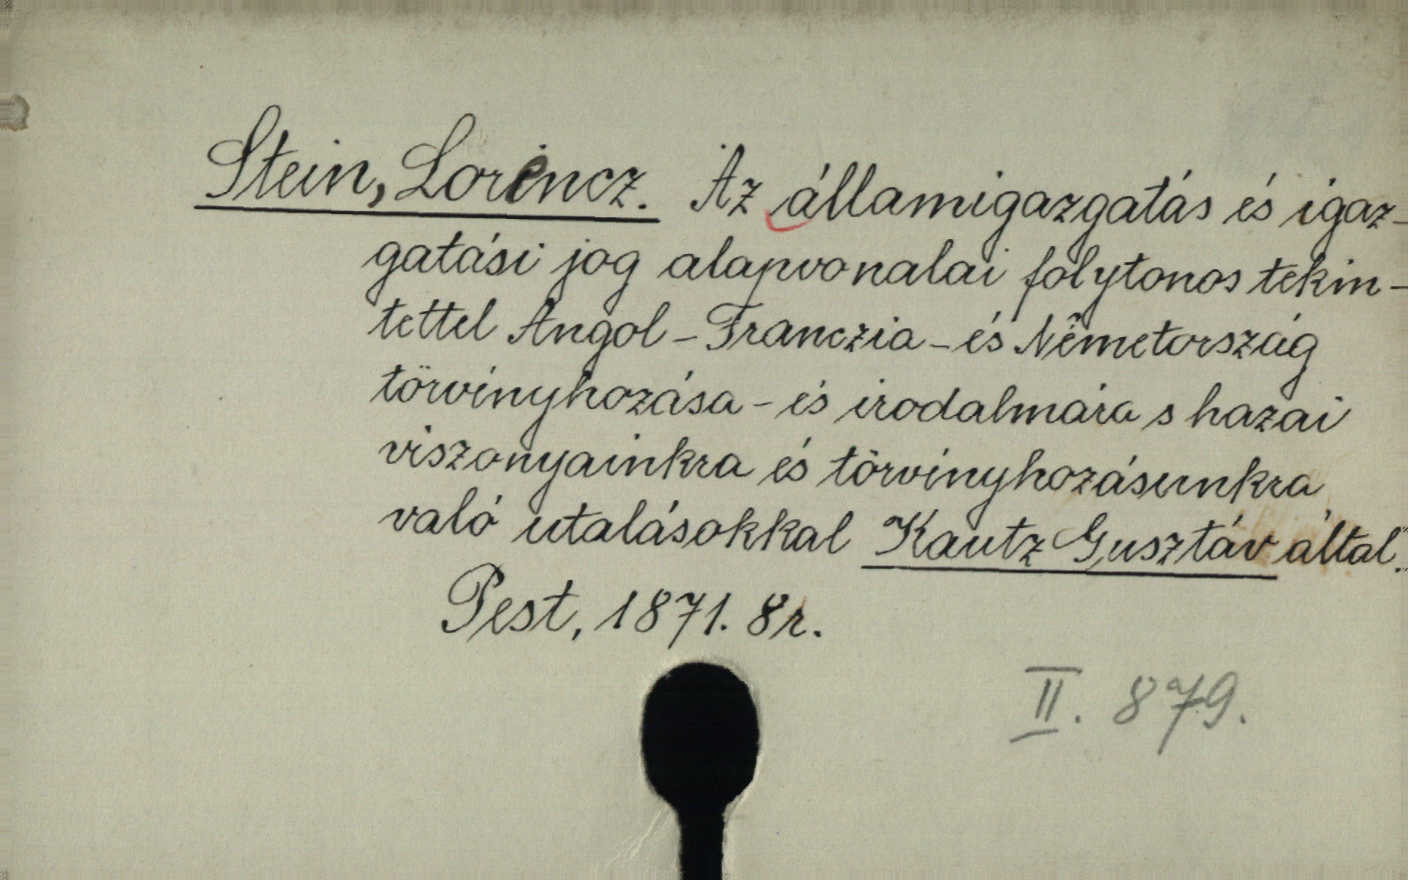 Stein, Lorencz. Az államigazgatás és igaz-
gatási jog alapvonalai folytonos tekin-
tettel Angol- Franczia- és Németország
törvényhozása- és irodalmára s hazai
viszonyainkra és törvényhozásunkra
való utalásokkal Kautz Gusztáv által.
Pest, 1871. 8r.
II. 879.